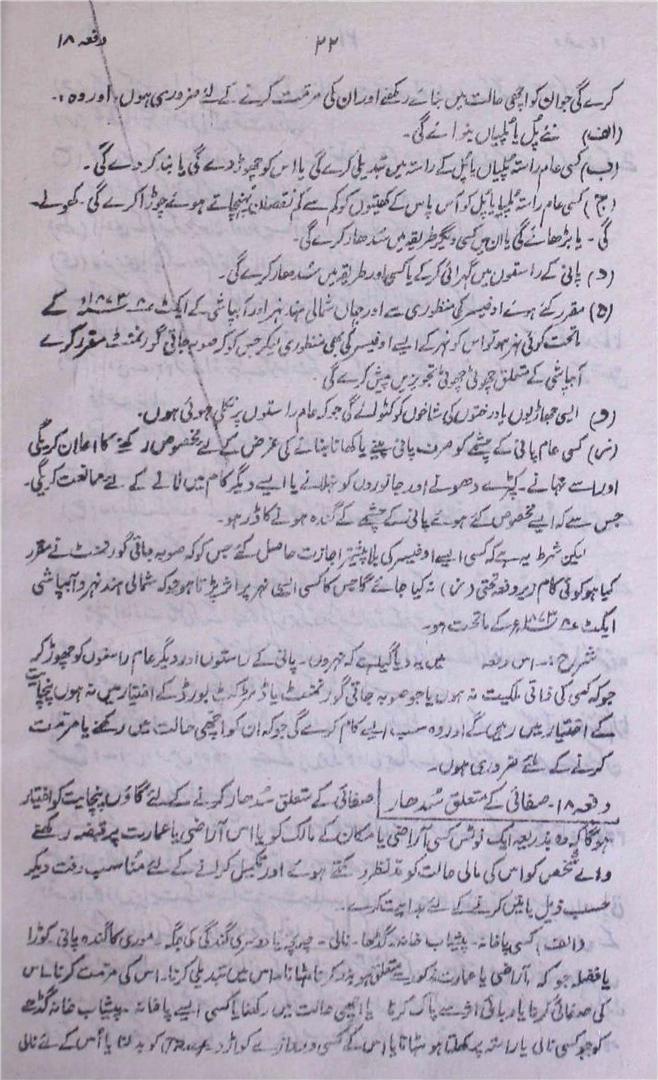 دفعہ ۱۸
۲۲
کرے گی جو ان کو اچھی حالت میں بنائے رکھنے اور ان کی مرمت کرنے کے لئے ضروری ہوں، اور وہ :۔
(الف) نئے پُل یا پُلیاں بنوائے گی۔
(ب) کسی عام راستہ پُلیاں یا پُل کے راستہ میں تبدیلی کرے گی یا اس کو چھوڑ دے گی یا بند کر دے گی۔
(ج) کسی عام راستہ پُلیا یا پُل کو آس پاس کے کھیتوں کو کم سے کم نقصان پہنچاتے ہوئے چوڑا کرے گی۔ کھولے
گی۔ یا بڑھائے گی یا ان میں کسی دیگر طریقہ میں سُدھار کرے گی۔
(د) پانی کے راستوں میں گہرائی کر کے یا کسی اور طریقہ میں سُدھار کرے گی۔
(ہ) مقرر کئے ہوئے اوفیسر کی منظوری سے اور جہاں شمالی ہند نہر اور آبپاشی کے ایکٹ ۸ ۱۸۷۳ء کے
ماتحت کوئی نہر ہو تو اس کو نہر کے ایسے اوفیسر کی بھی منظوری لیکر جس کو کہ صوبہ جاتی گورنمنٹ مقرر کرے
آبپاشی کے متعلق چھوٹی چھوٹی تجویزیں پیش کرے گی۔
(و) ایسی جھاڑیوں یا درختوں کی شاخوں کو کٹوائے گی جو کہ عام راستوں پر نکلی ہوئی ہوں۔
(ز) کسی عام پانی کے چشمے کو صرف پانی پینے یا کھانا بنانے کی غرض کے لئے مخصوص رکھنے کا اعلان کریگی
اور اسے نہانے۔ کپڑے دھونے اور جانوروں کو نہلانے یا ایسے دیگر کام میں لانے کے لئے ممانعت کریگی۔
جس سے کہ ایسے مخصوص کئے ہوئے پانی کے چشمے کے گندہ ہونے کا ڈر ہو۔
لیکن شرط یہ ہے کہ کسی ایسے اوفیسر کی بلا پیشتر اجازت حاصل کئے جس کو کہ صوبہ جاتی گورنمنٹ نے مقرر
کیا ہو کوئی کام زیر دفعہ تحتی (ز) نہ کیا جائے گا جس کا کسی ایسی نہر پر اثر پڑتا ہو جو کہ شمالی ہند نہر و آبپاشی
ایکٹ ۸ ۱۸۷۳ء کے ماتحت ہو۔
شرح :۔ اس دفعہ میں یہ دیا گیا ہے کہ نہروں۔ پانی کے راستوں اور دیگر عام راستوں کو چھوڑ کر
جو کہ کسی کی ذاتی ملکیت نہ ہوں یا جو صوبہ جاتی گورنمنٹ یا ڈسٹرکٹ بورڈ کے اختیار میں نہ ہوں پنچایت
کے اختیار میں رہیں گے اور وہ سب ایسے کام کرے گی جو کہ ان کو اچھی حالت میں رکھنے یا مرمت
کرنے کے لئے ضروری ہوں۔
دفعہ ۱۸۔ صفائی کے متعلق سُدھار صفائی کے متعلق سُدھار کرنے کے لئے گاؤں پنچایت کو اختیار
ہوگا کہ وہ بذریعہ ایک نوٹس کسی آراضی یا مکان کے مالک کو یا اس آراضی یا عمارت پر قبضہ رکھنے
والے شخص کو اس کی مالی حالت کو مدنظر رکھتے ہوئے اور تکمیل کرانے کے لئے مناسب وقت دیکر
حسب ذیل باتیں کرنے کے لئے ہدایت کرے۔
(الف) کسی پاخانہ۔ پیشاب خانہ۔ گڈھا۔ نالی۔ چہبچہ یا دوسری گندگی کی جگہ۔ موری کا گندہ پانی کوڑا
یا فضلہ جو کہ آراضی یا عمارت مذکور سے متعلق ہو بند کرنا ہٹانا۔ اس میں تبدیلی کرنا۔ اس کی مرمت کرنا۔ اس
کی صفائی کرنا یا وبائی اثر سے پاک کرنا یا اچھی حالت میں رکھنا یا کسی ایسے پاخانہ۔ پیشاب خانہ گڈھے
کو جو کسی نالی یا راستہ پر کھلتا ہو ہٹانا یا اس کے کسی دروازے کواڑ (Trap) کو بدلنا یا اس کے لئے نالی